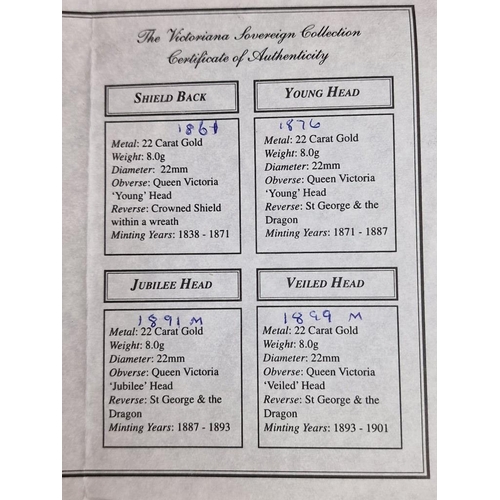 The Victoriana Sovereign Collection
Certificate of Authenticity
SHIELD BACK
1861
Metal: 22 Carat Gold
Weight: 8.0g
Diameter: 22mm
Obverse: Queen Victoria
'Young' Head
Reverse: Crowned Shield
within a wreath
Minting Years: 1838 - 1871
YOUNG HEAD
1876
Metal: 22 Carat Gold
Weight: 8.0g
Diameter: 22mm
Obverse: Queen Victoria
'Young' Head
Reverse: St George & the
Dragon
Minting Years: 1871 - 1887
JUBILEE HEAD
1891 M
Metal: 22 Carat Gold
Weight: 8.0g
Diameter: 22mm
Obverse: Queen Victoria
'Jubilee' Head
Reverse: St George & the
Dragon
Minting Years: 1887 - 1893
VEILED HEAD
1899 M
Metal: 22 Carat Gold
Weight: 8.0g
Diameter: 22mm
Obverse: Queen Victoria
'Veiled' Head
Reverse: St George & the
Dragon
Minting Years: 1893 - 1901